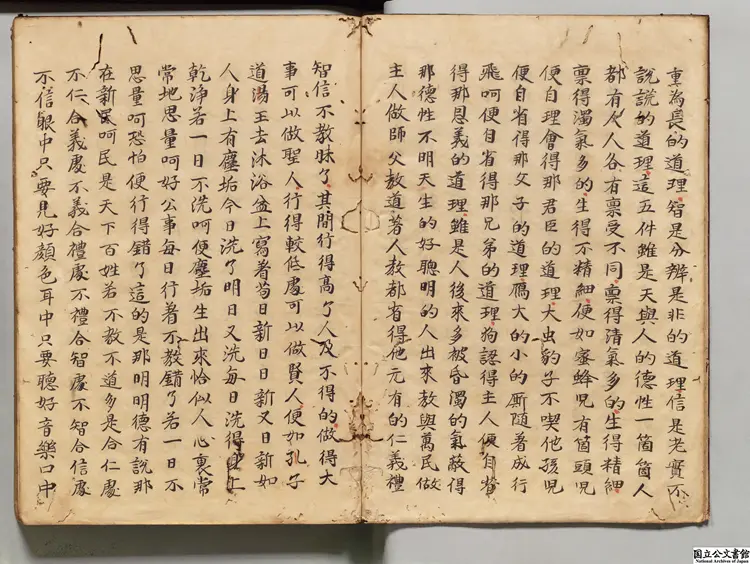 重為長的道理智是分辨是非的道理信是老實不
說謊的道理這五件雖是天與人的德性一箇箇人
都有及人各有稟受不同稟得清氣多的生得精細
稟得濁氣多的生得不精細便如蜜蜂兒有箇頭兒
便自理會得那君臣的道理大虫豹子不喫他孩兒
便自省得那父子的道理鴈大的小的廝隨著成行
飛呵便自省得那兄弟的道理狗認得主人便自省
得那恩義的道理雖是人後來多被昏濁的氣蔽得
那德性不明天生的好聰明的人出來教與萬民做
主人做師父教道著人教都省得他元有的仁義禮
智信不教昧了其間行得高了人及不得的做得大
事可以做聖人行得較低處可以做賢人便如孔子
道湯王去沐浴盆上寫著苟日新日日新又日新如
人身上有塵垢今日洗了明日又洗每日洗得身上
乾淨若一日不洗呵便塵垢生出來恰似人心裏常
常地思量呵好公事每日行著不教錯了若一日不
思量呵恐怕便行得錯了這的是那明明德有說那
在新民呵民是天下百姓若不教不道多是合仁處
不仁合義處不義合禮處不禮合智處不智合信處
不信眼中只要見好顏色耳中只要聽好音樂口中
国立公文書館
National Archives of Japan